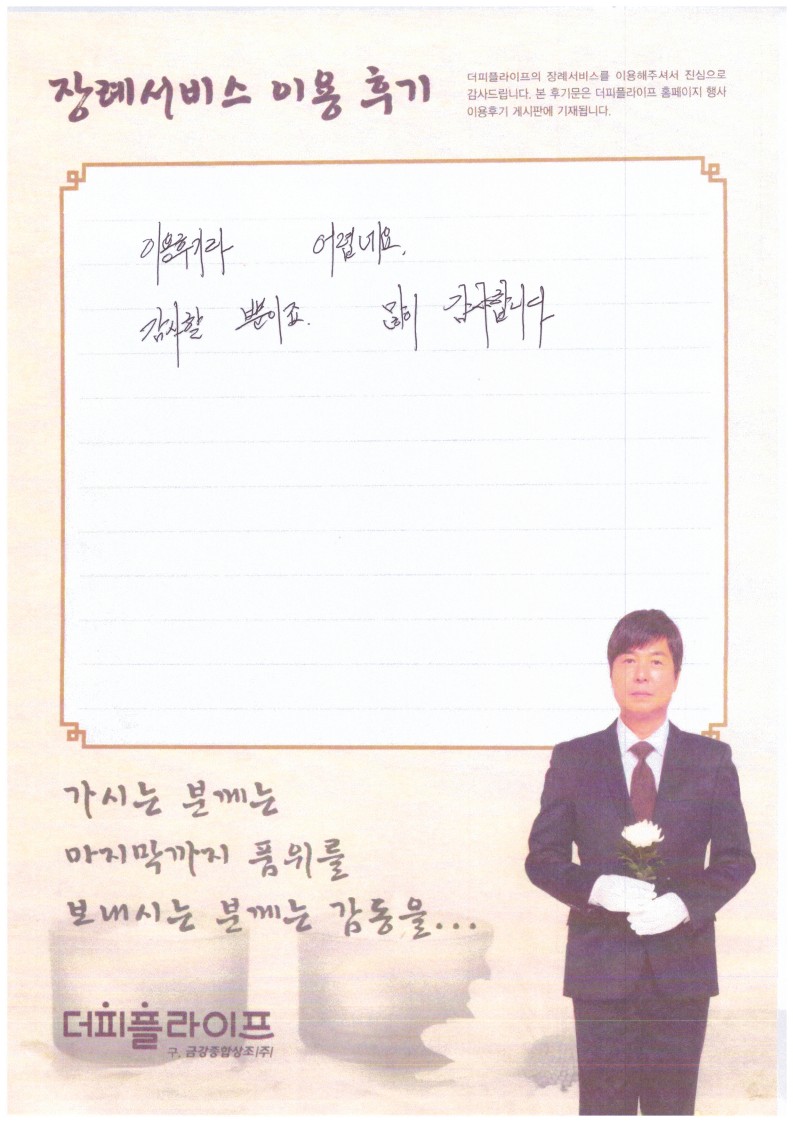 장례서비스 이용 후기
더피플라이프의 장례서비스를 이용해주셔서 진심으로
감사드립니다. 본 후기문은 더피플라이프 홈페이지 행사
이용후기 게시판에 기재됩니다.
이용후기라 어렵네요.
감사할 뿐이죠. 많이 감사합니다
가시는 분께는
마지막까지 품위를
보내시는 분께는 감동을...
더피플라이프
구. 금강종합상조(주)